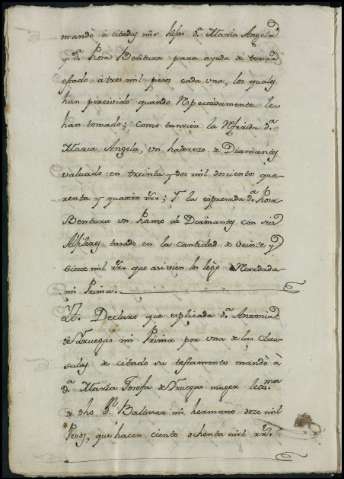 mandó à citadas mis hijas Dª María Angela
y Dª Rosa Bentura para ayuda de tomar
estado à tres mil pesos cada una, los quales
han percivido quando respectivamente le
han tomado; como tanvien la referida Dª
María Angela, un haderezo de Diamantes
valuado en treinta y dos mil doscientos qua
renta y quatro rrs; y la expresada Dª Rosa
Bentura un Ramo de Diamantes con sus
tasado en la cantidad de veinte y
cinco mil rrs que asi vien lo legó nominada
mi Prima.
Declaro que explicada Dª Antonia
de Bruegas mi Prima por una de las Clau
sulas de citado su testamento mandó à
Dª María Josefa de Bruegas muger lexma
de dho Dn Baltasar mi hermano doce mil
Pesos, que hacen ciento ochenta mil rrs.